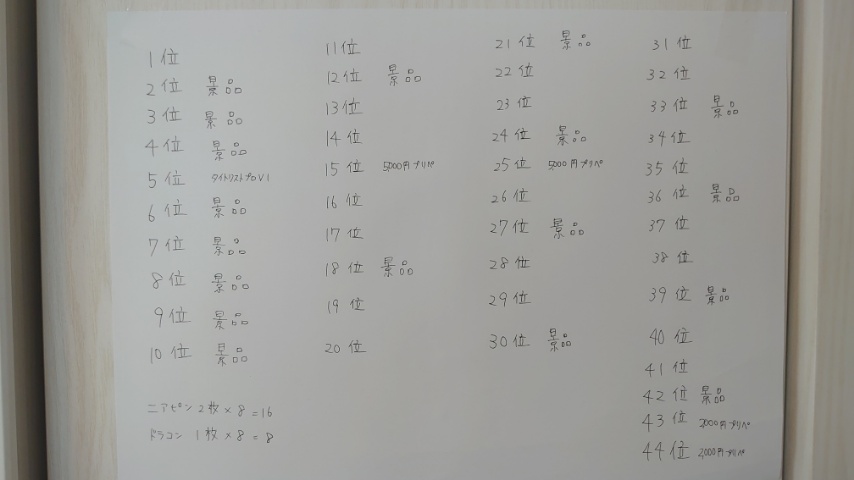 1位
2位 景品
3位 景品
4位 景品
5位 タイトリストプロV1
6位 景品
7位 景品
8位 景品
9位 景品
10位 景品
ニアピン 2枚×8=16
ドラコン 1枚×8=8
11位
12位 景品
13位
14位
15位 5,000円プリペ
16位
17位
18位 景品
19位
20位
21位 景品
22位
23位
24位 景品
25位 5,000円プリペ
26位
27位 景品
28位
29位
30位 景品
31位
32位
33位 景品
34位
35位
36位 景品
37位
38位
39位 景品
40位
41位
42位 景品
43位 2,000円プリペ
44位 2,000円プリペ